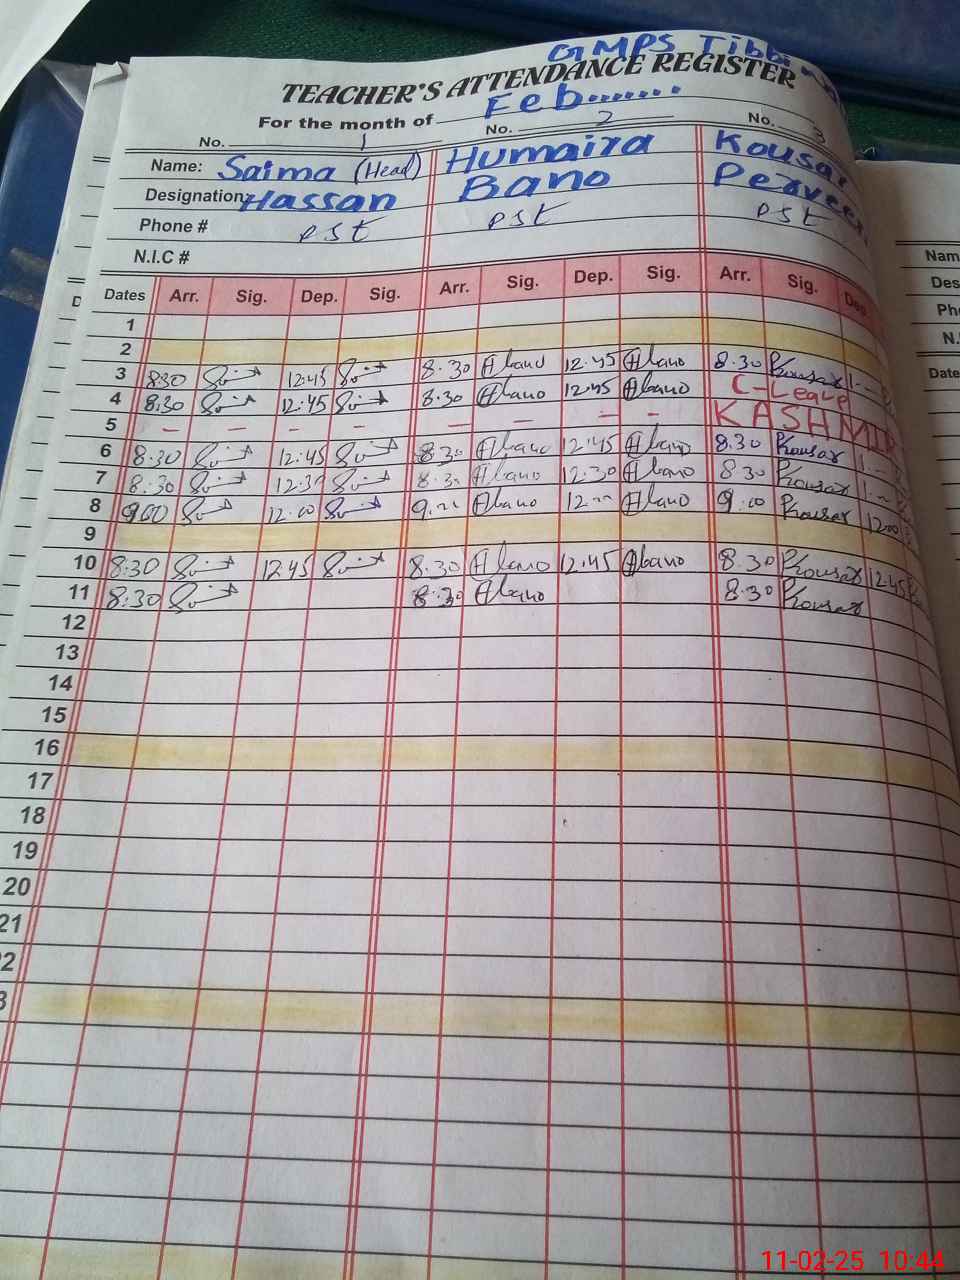 GMPS Tibbi
TEACHER'S ATTENDANCE REGISTER
For the month of Feb.......
No. 1 No. 2 No. 3
Name: Saima (Head) Humaira Kousar
Designation: Hassan Bano Perveen
Phone # PST PST PST
N.I.C #
Dates Arr. Sig. Dep. Sig. Arr. Sig. Dep. Sig. Arr. Sig. Dep.
1
2
3 8:30 12:45 8.30 Hbano 12:45 Hbano 8.30 Kousar
4 8:30 12:45 8:30 Hbano 12:45 Hbano C-Leave
5 - - - - - - - - KASHMIR
6 8:30 12:45 8:30 Hbano 12:45 Hbano 8.30 Kousar
7 8:30 12:30 8:30 Hbano 12:30 Hbano 8:30 Kousar
8 9:00 12:00 9:00 Hbano 12:00 Hbano 9:00 Kousar 12:00
9
10 8:30 12:45 8:30 Hbano 12:45 Hbano 8:30 Kousar 12:45
11 8:30 8:30 Hbano 8:30 Kousar
12
13
14
15
16
17
18
19
20
21
2
3
Nam
Des
Pho
N.I
Date
11-02-25 10:44